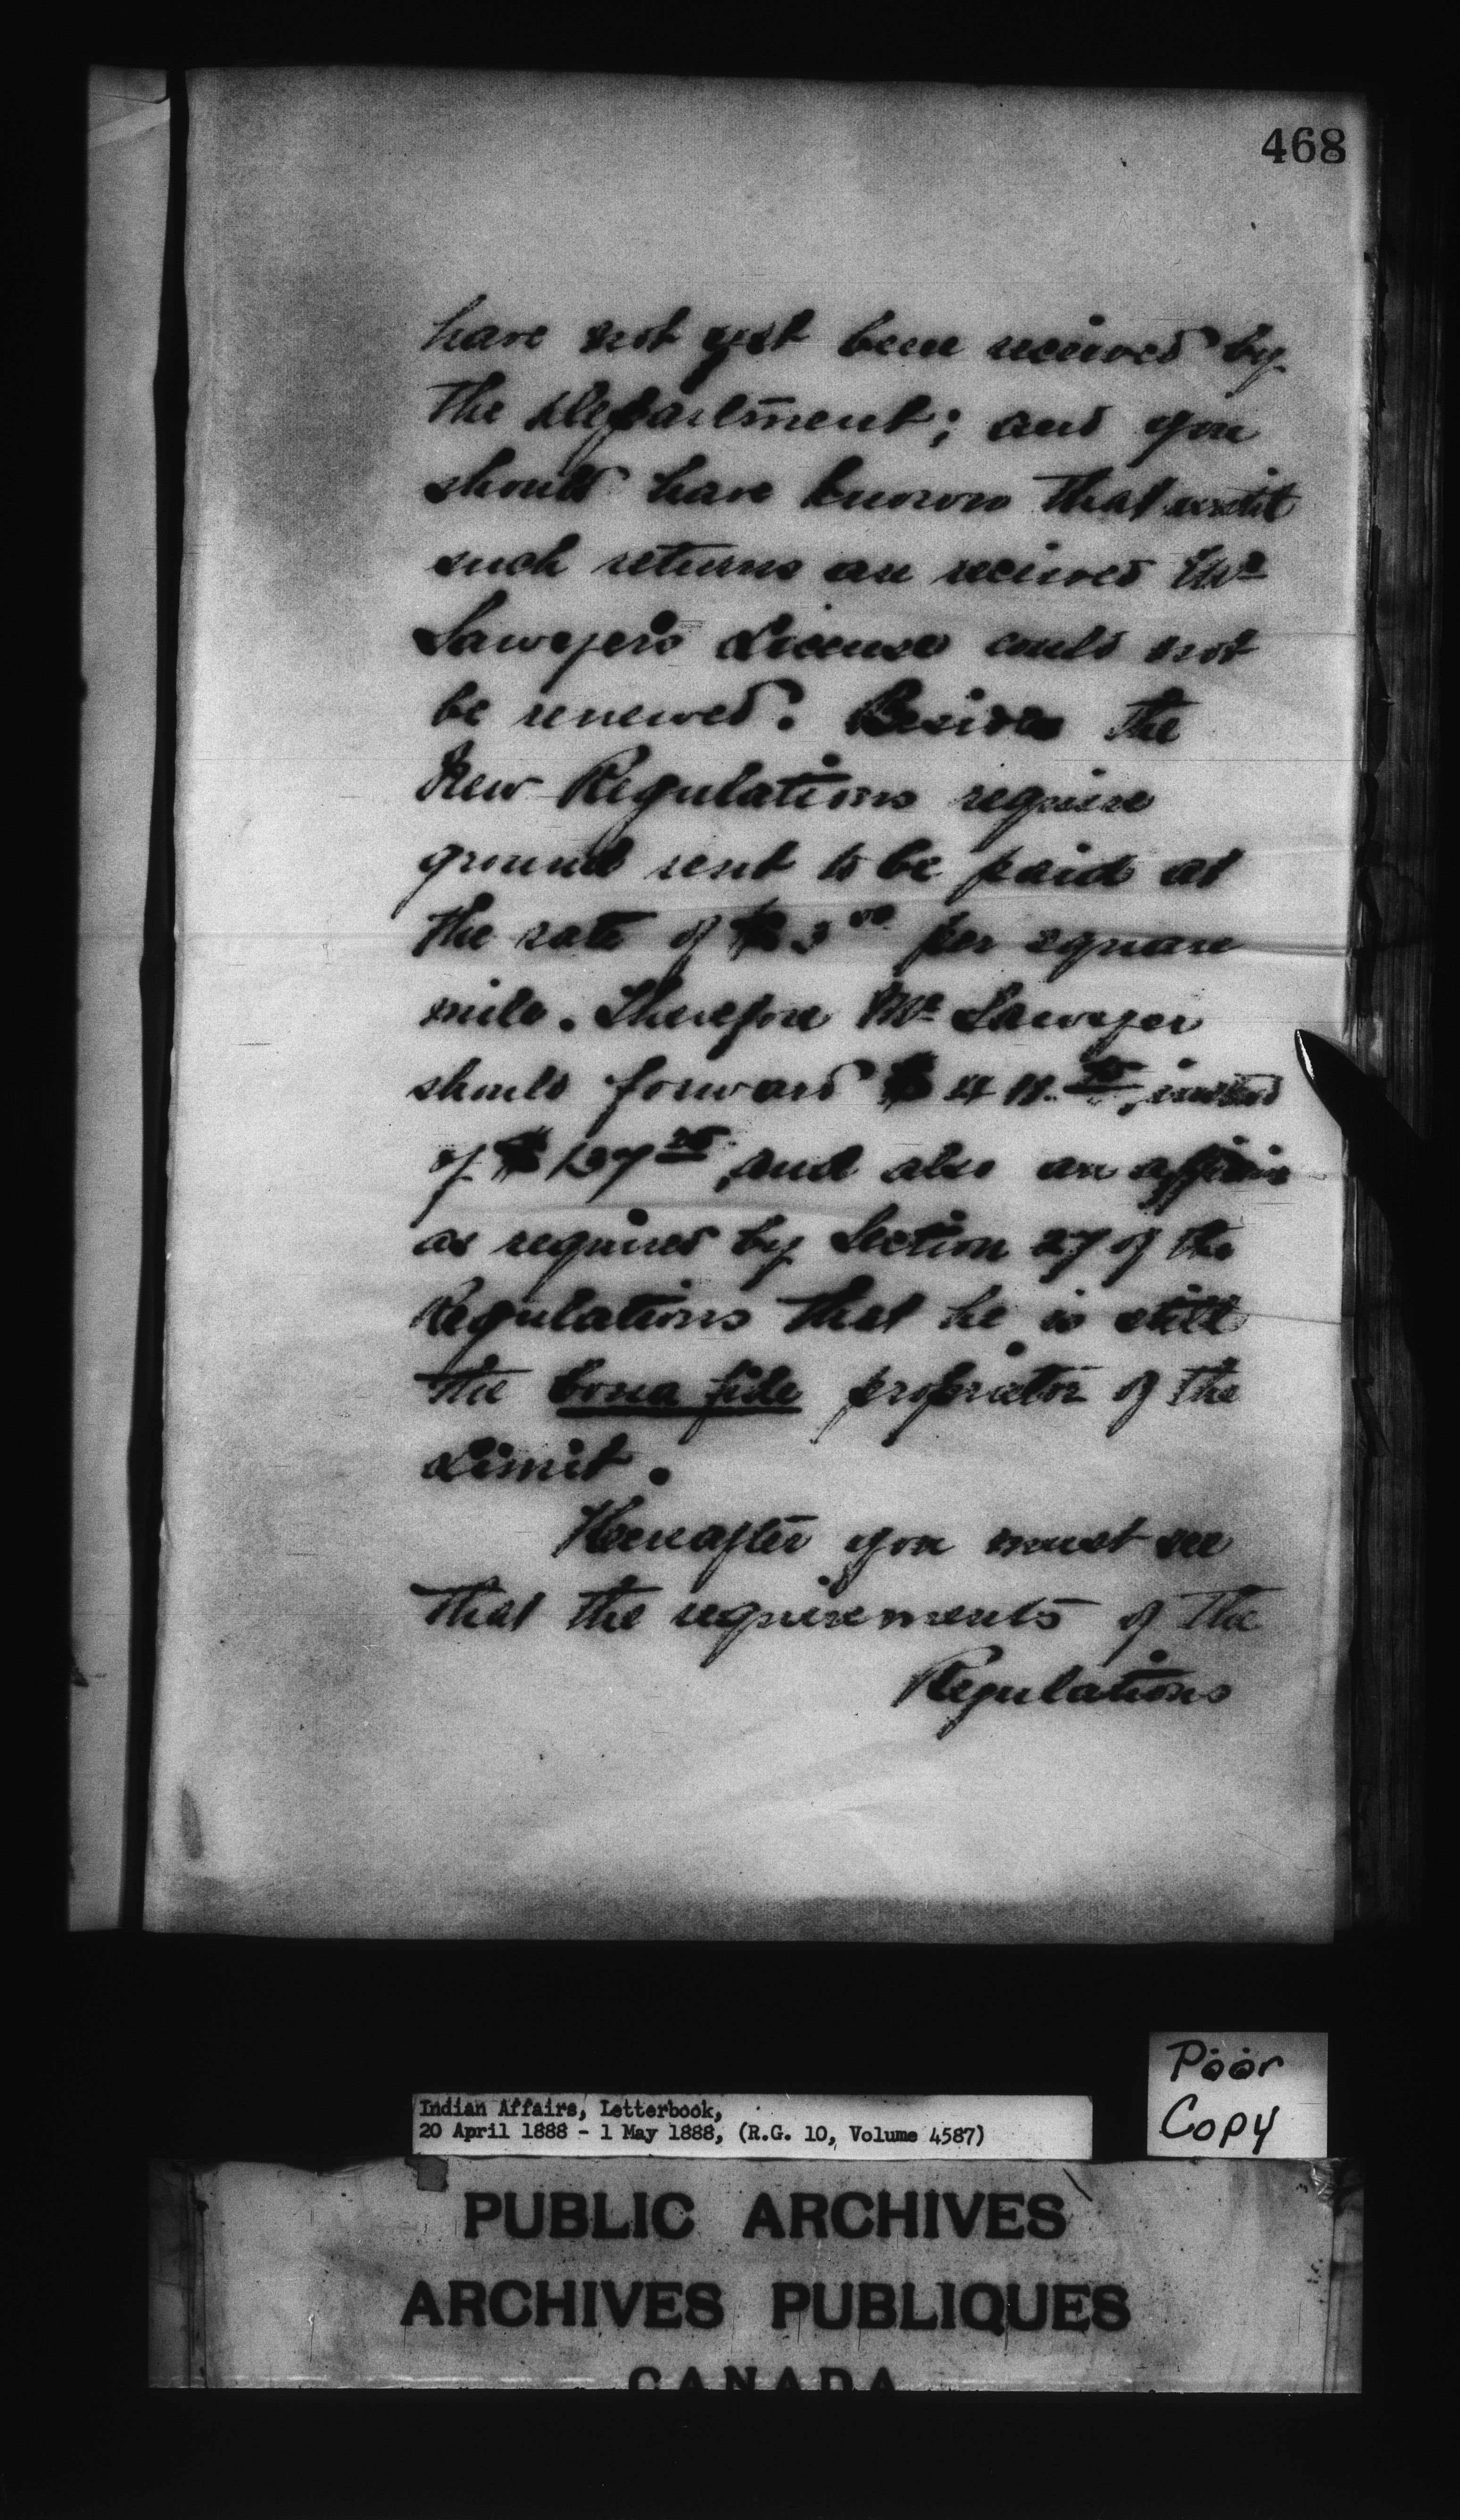 468
have not yet been received by
the Department; and you
should have known that until
such returns are received Mr
Sawyer's License could not
be renewed. Besides the
New Regulations require
ground rent to be paid at
the rate of $3.00 per square
mile. Therefore Mr Sawyer
should forward $ instead
of $ and also an
as required by Section 27 of the
Regulations that he is still
the bona fide proprietor of the
Limit.
Hereafter you must see
that the requirements of the
Regulations
Poor
Copy
Indian Affairs, Letterbook,
20 April 1888 - 1 May 1888, (R.G. 10, Volume 4587)
PUBLIC ARCHIVES
ARCHIVES PUBLIQUES
CANADA